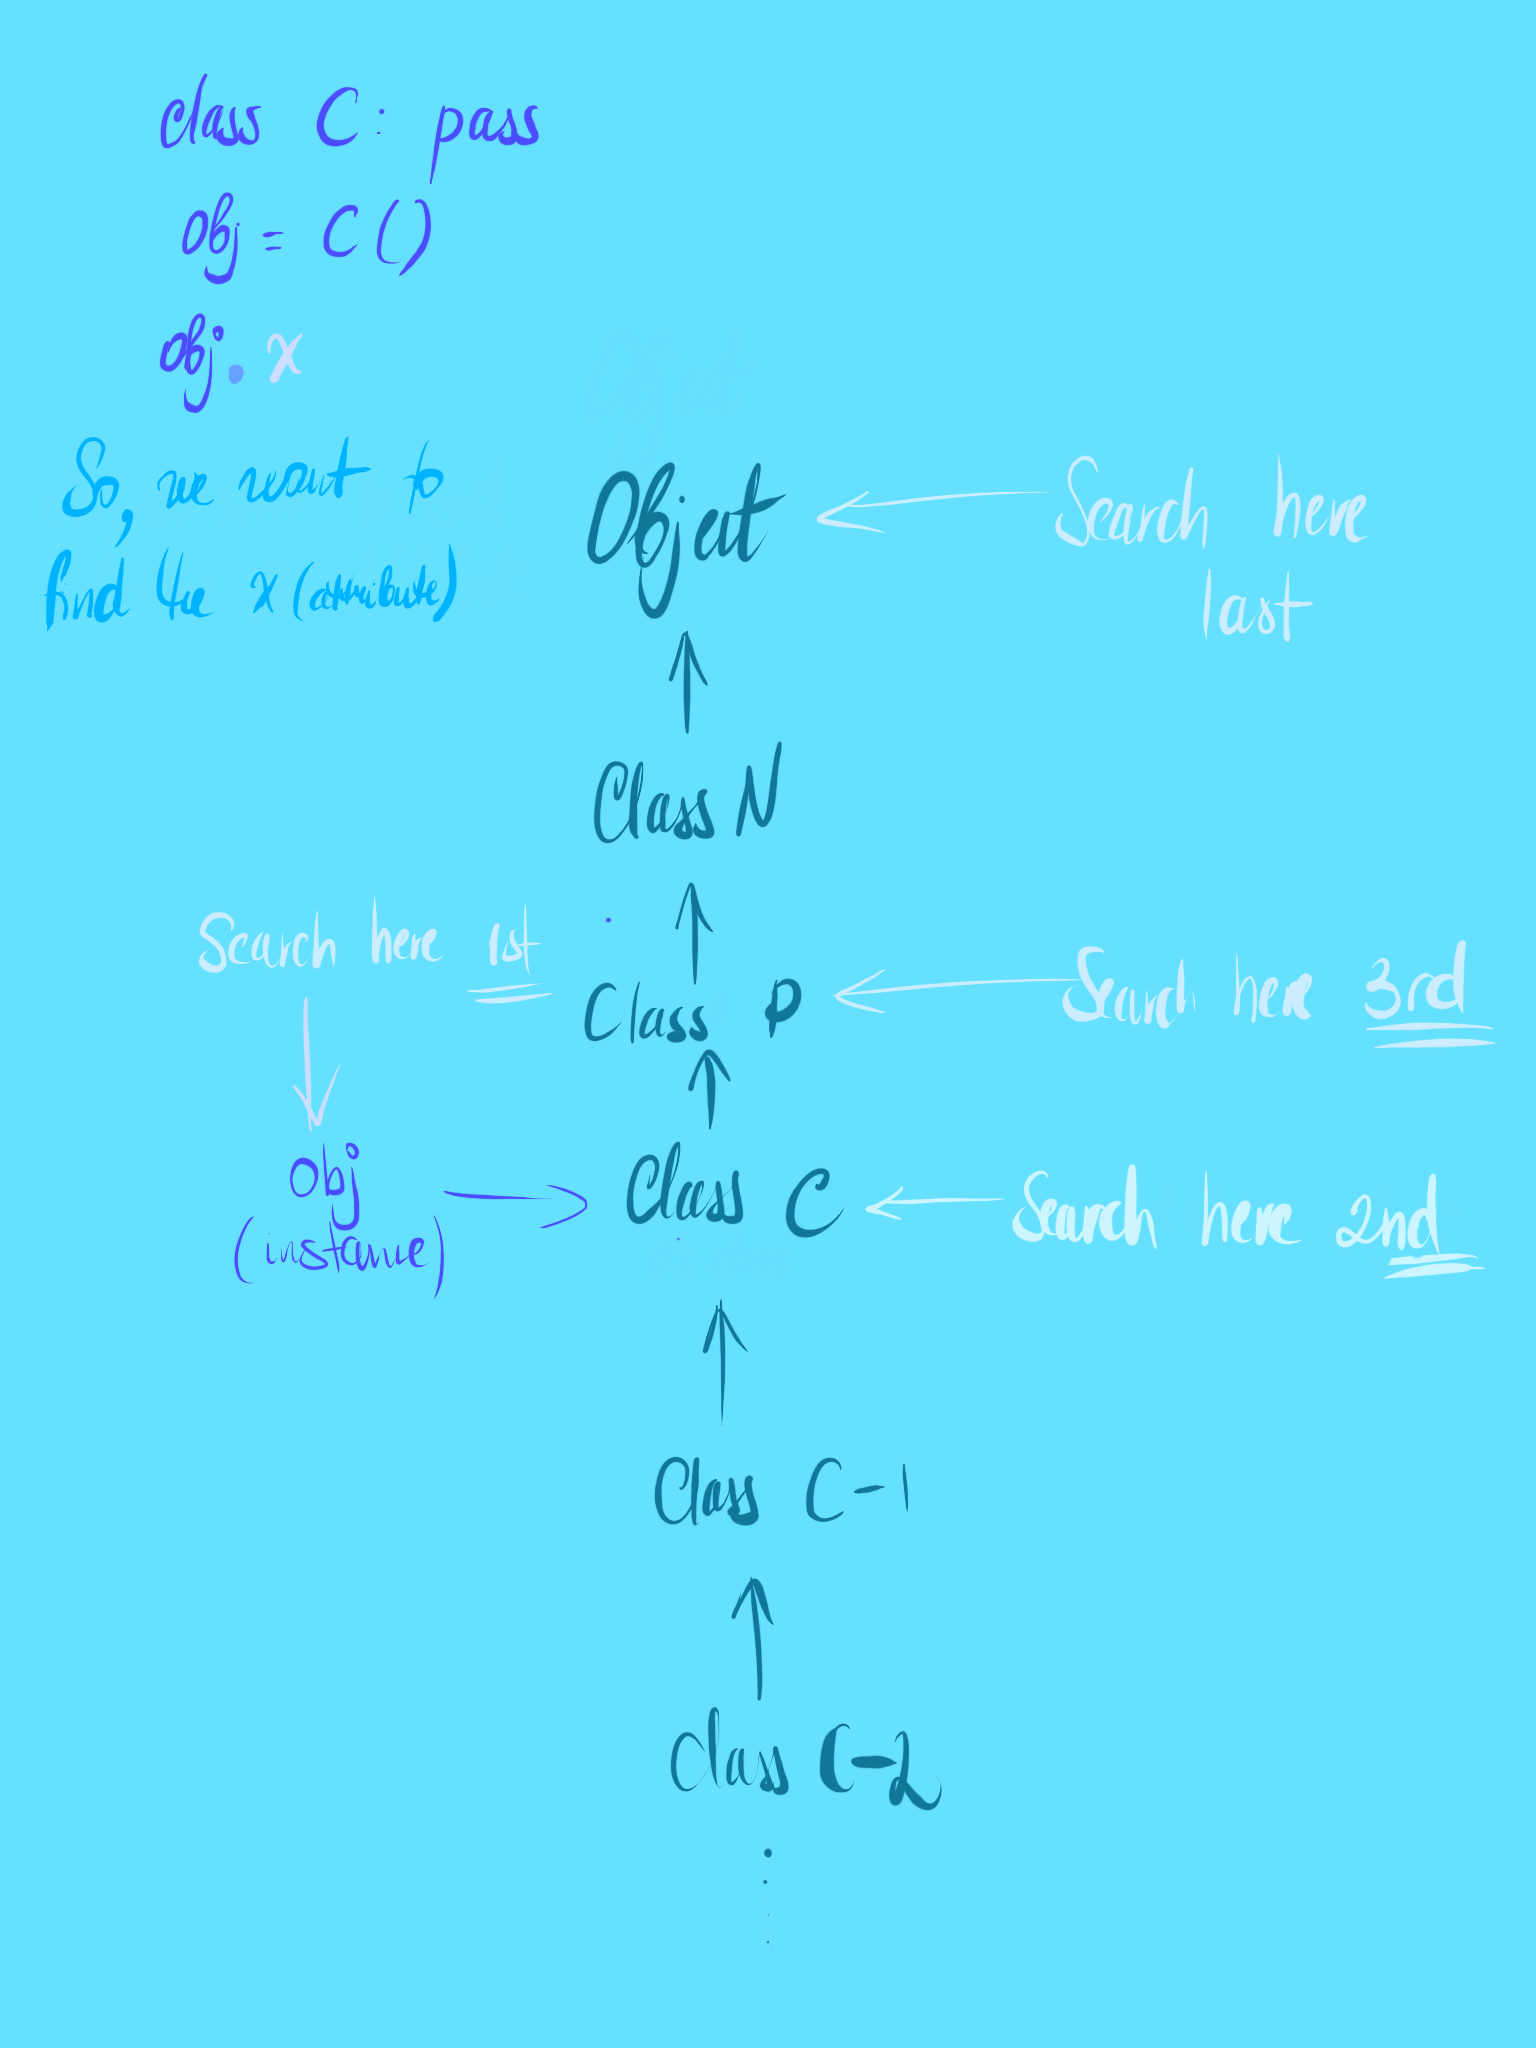 class C: pass
Obj = C()
Obj. x
So, we want to
find the x (attribute)
Object
Search here
last
Class N
Search here 1st
Class P
Search here 3rd
Obj
(instance)
Class C
Search here 2nd
Class C-1
Class C-2